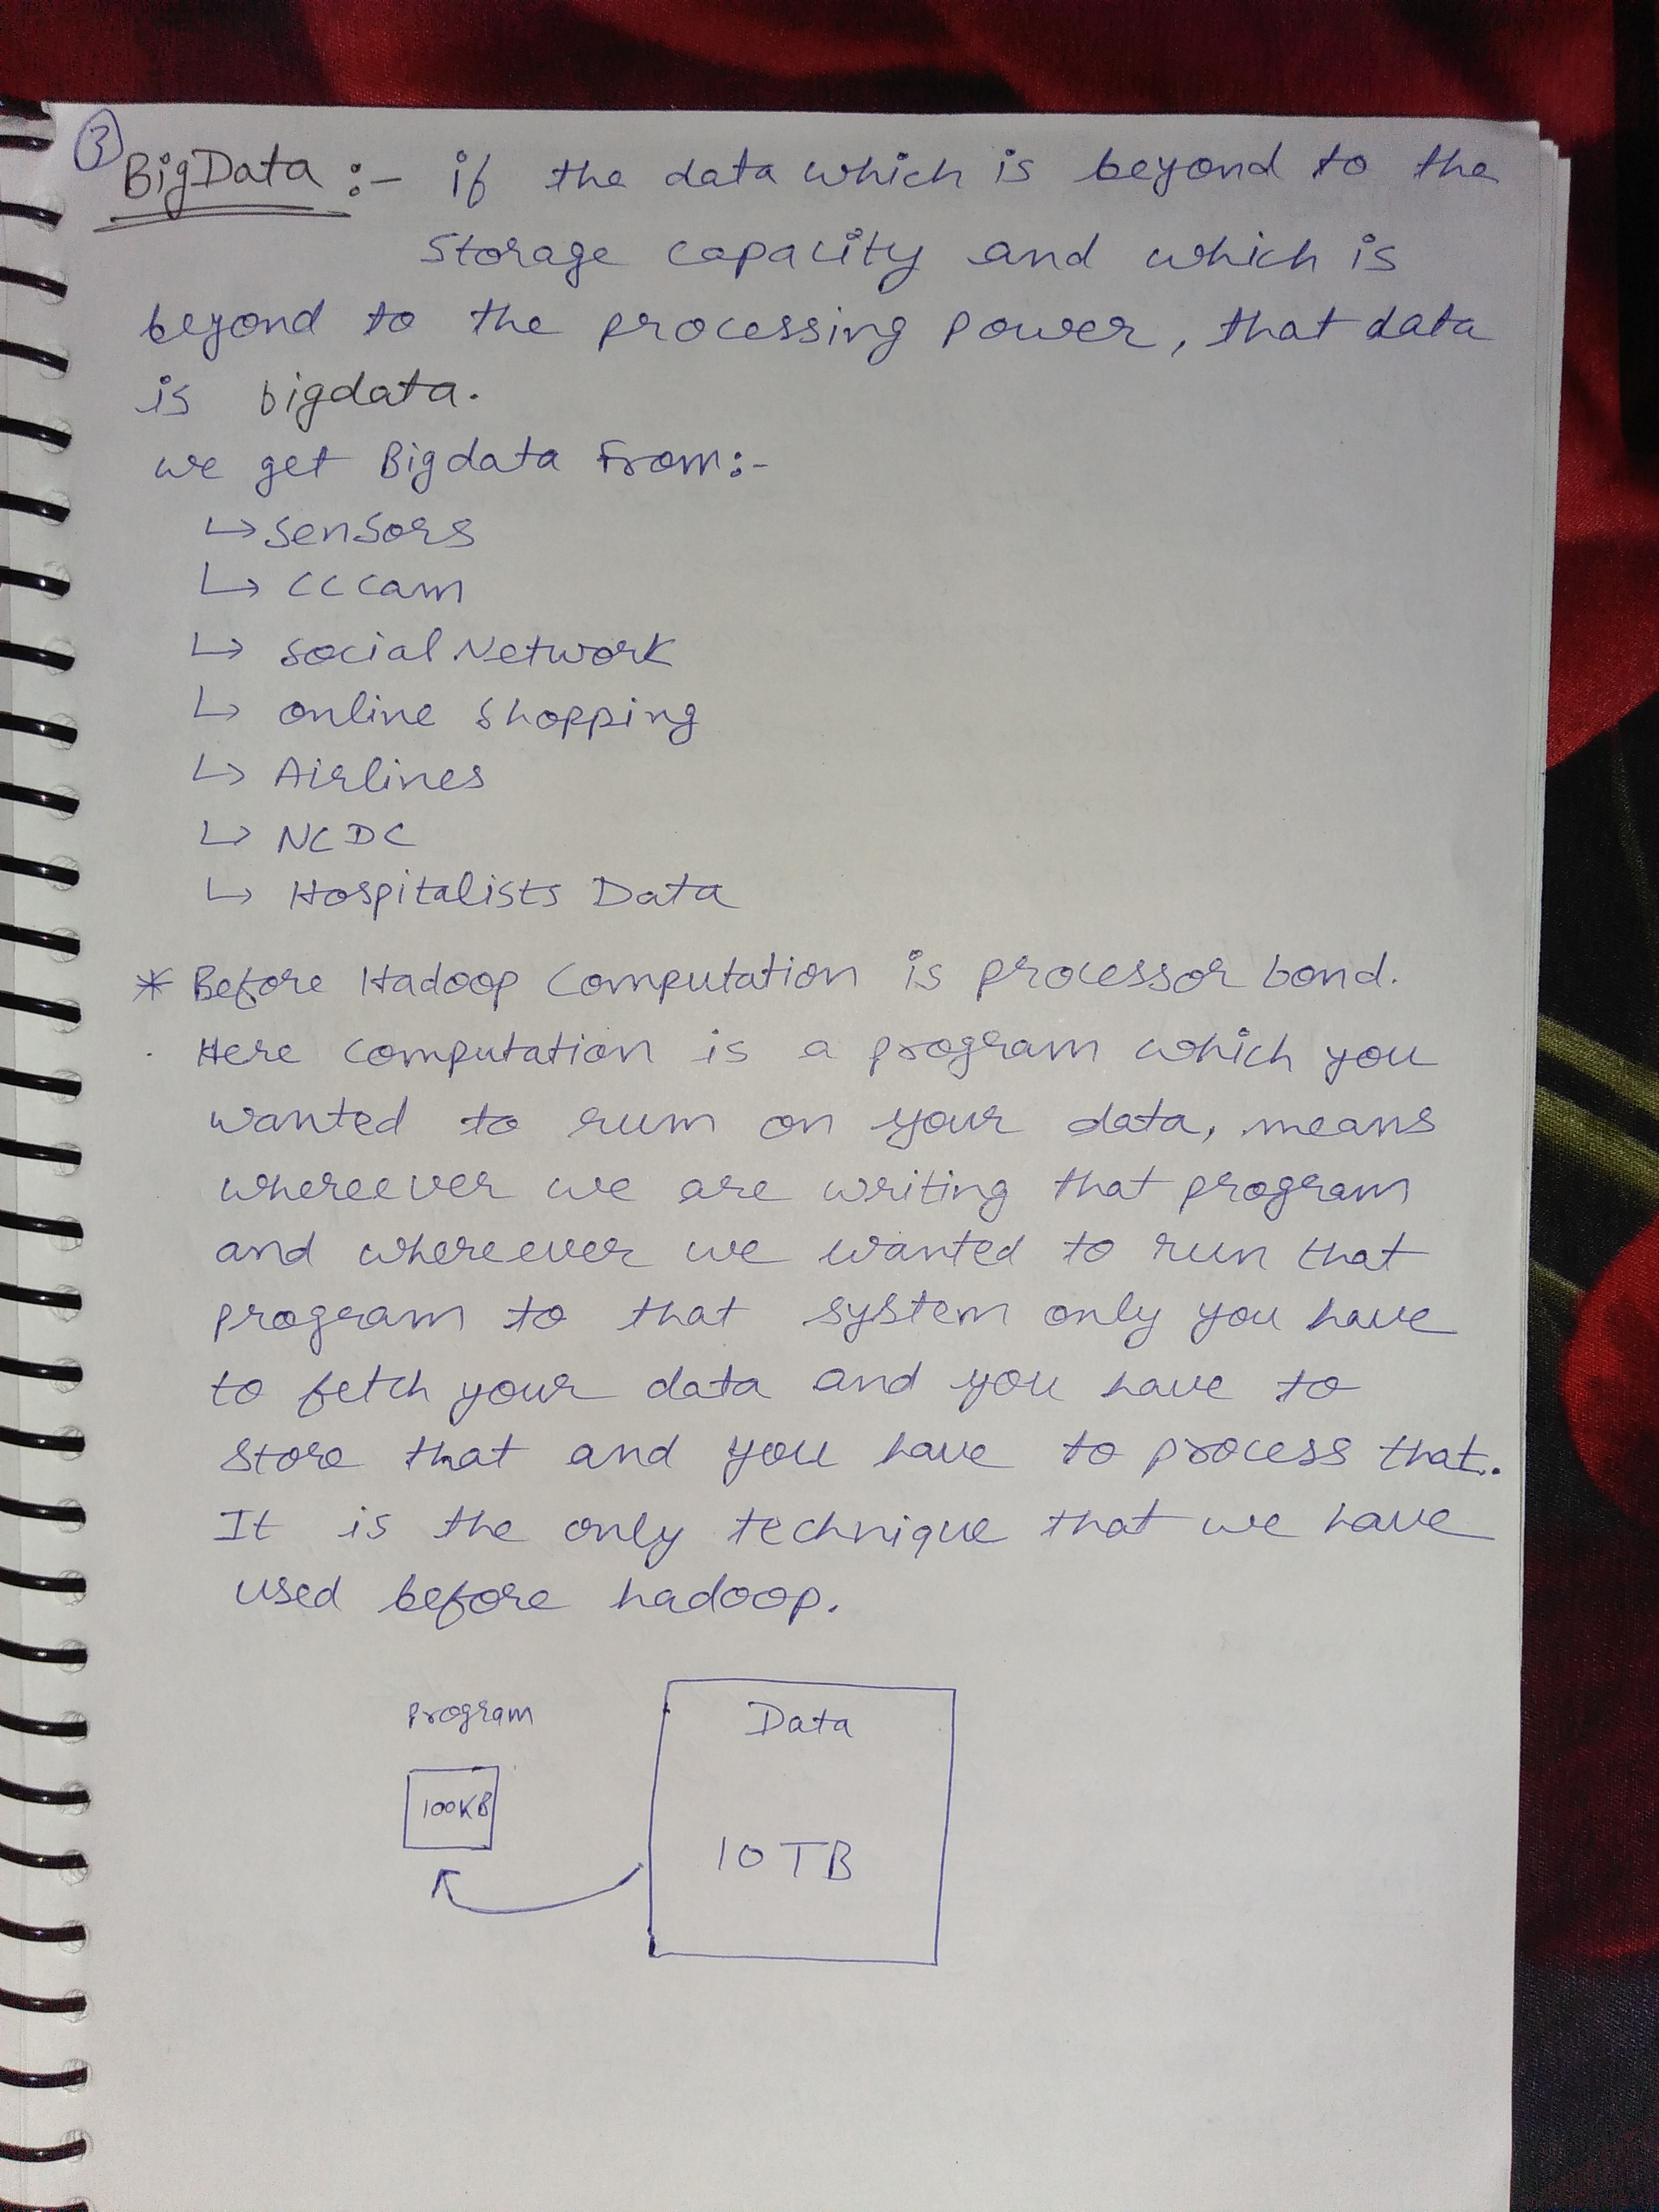 ③
BigData :- if the data which is beyond to the
storage capacity and which is
beyond to the processing power, that data
is bigdata.
we get Bigdata From:-
↳ sensors
↳ CC cam
↳ social Network
↳ online shopping
↳ Airlines
↳ NCDC
↳ Hospitalists Data
* Before Hadoop Computation is processor bond.
Here computation is a program which you
wanted to rum on your data, means
whereever we are writing that program
and whereever we wanted to run that
program to that system only you have
to fetch your data and you have to
store that and you have to process that.
It is the only technique that we have
used before hadoop.
program
Data
100KB
10 TB